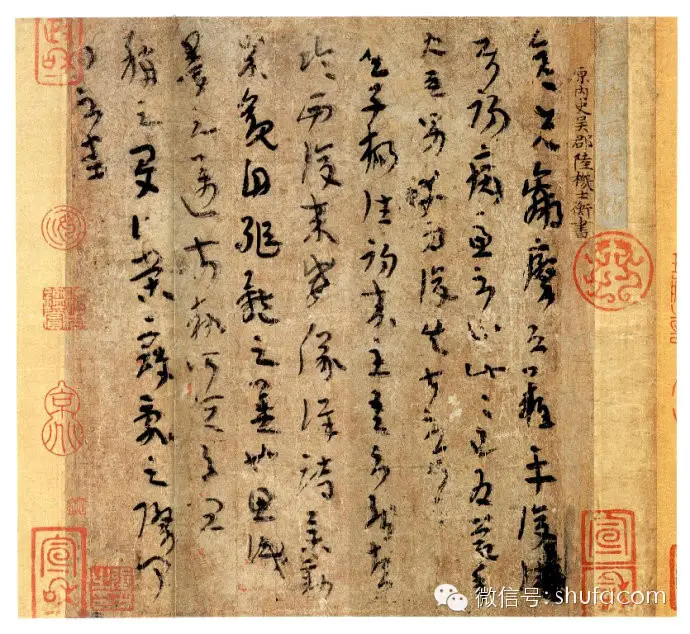 原内史吳郡陸機士衡書
彦先羸瘵恐難平復往屬
初病慮不止此此已為慶承
使唯男幸為復失前憂耳
吳子楊往初來主吾不能盡
臨西復來威儀詳跱舉動
成觀自軀體之美也思識
量之邁前執所恒有宜
稱之夏伯榮寇亂之際聞
問不悉
宣和
宣和
微信号: shufacom